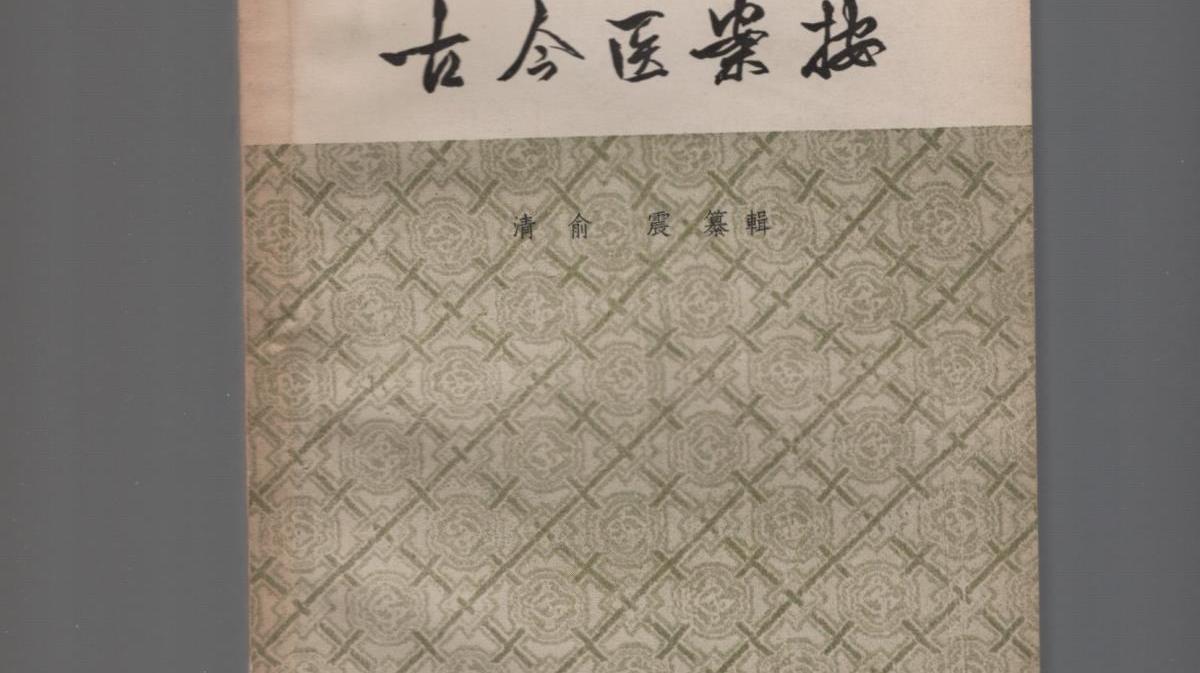 古今医案按
清 俞 震 纂輯